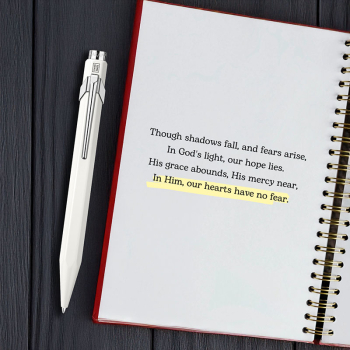 Though shadows fall, and fears arise,
In God's light, our hope lies.
His grace abounds, His mercy near,
In Him, our hearts have no fear.